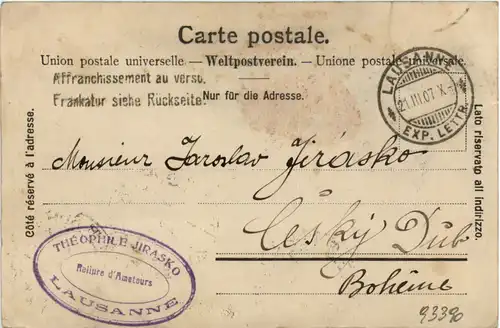 Carte postale.
Union postale universelle — Weltpostverein. — Unione postale universale.
Affranchissement au verso.
Frankatur siehe Rückseite.
Nur für die Adresse.
LAUSANNE
21.III.07.X-
EXP. LETTR.
Côté réservé à l'adresse.
Lato riservato all indirizzo.
Monsieur Jaroslav Jirásko
Český Dub
Bohême
THÉOPHILE JIRASKO
Reliure d'Amateurs
LAUSANNE
93390